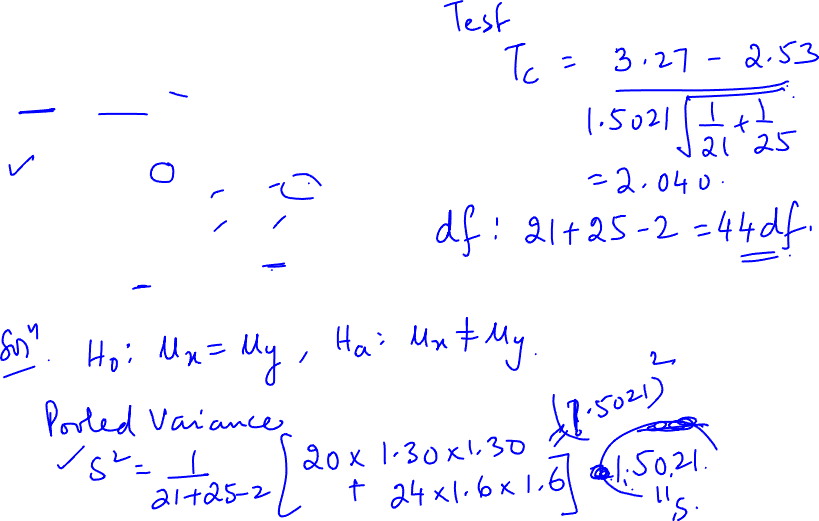 Test
Tc = 3.27 - 2.53 / 1.5021 √(1/21 + 1/25)
= 2.040.
df : 21+25-2 = 44 df.
Solⁿ. H₀: μx = μy , Ha: μx ≠ μy.
Pooled Variance
✓ S² = 1/(21+25-2) [20 x 1.30 x 1.30 + 24 x 1.6 x 1.6] (1.5021)²
1.5021.
"S.